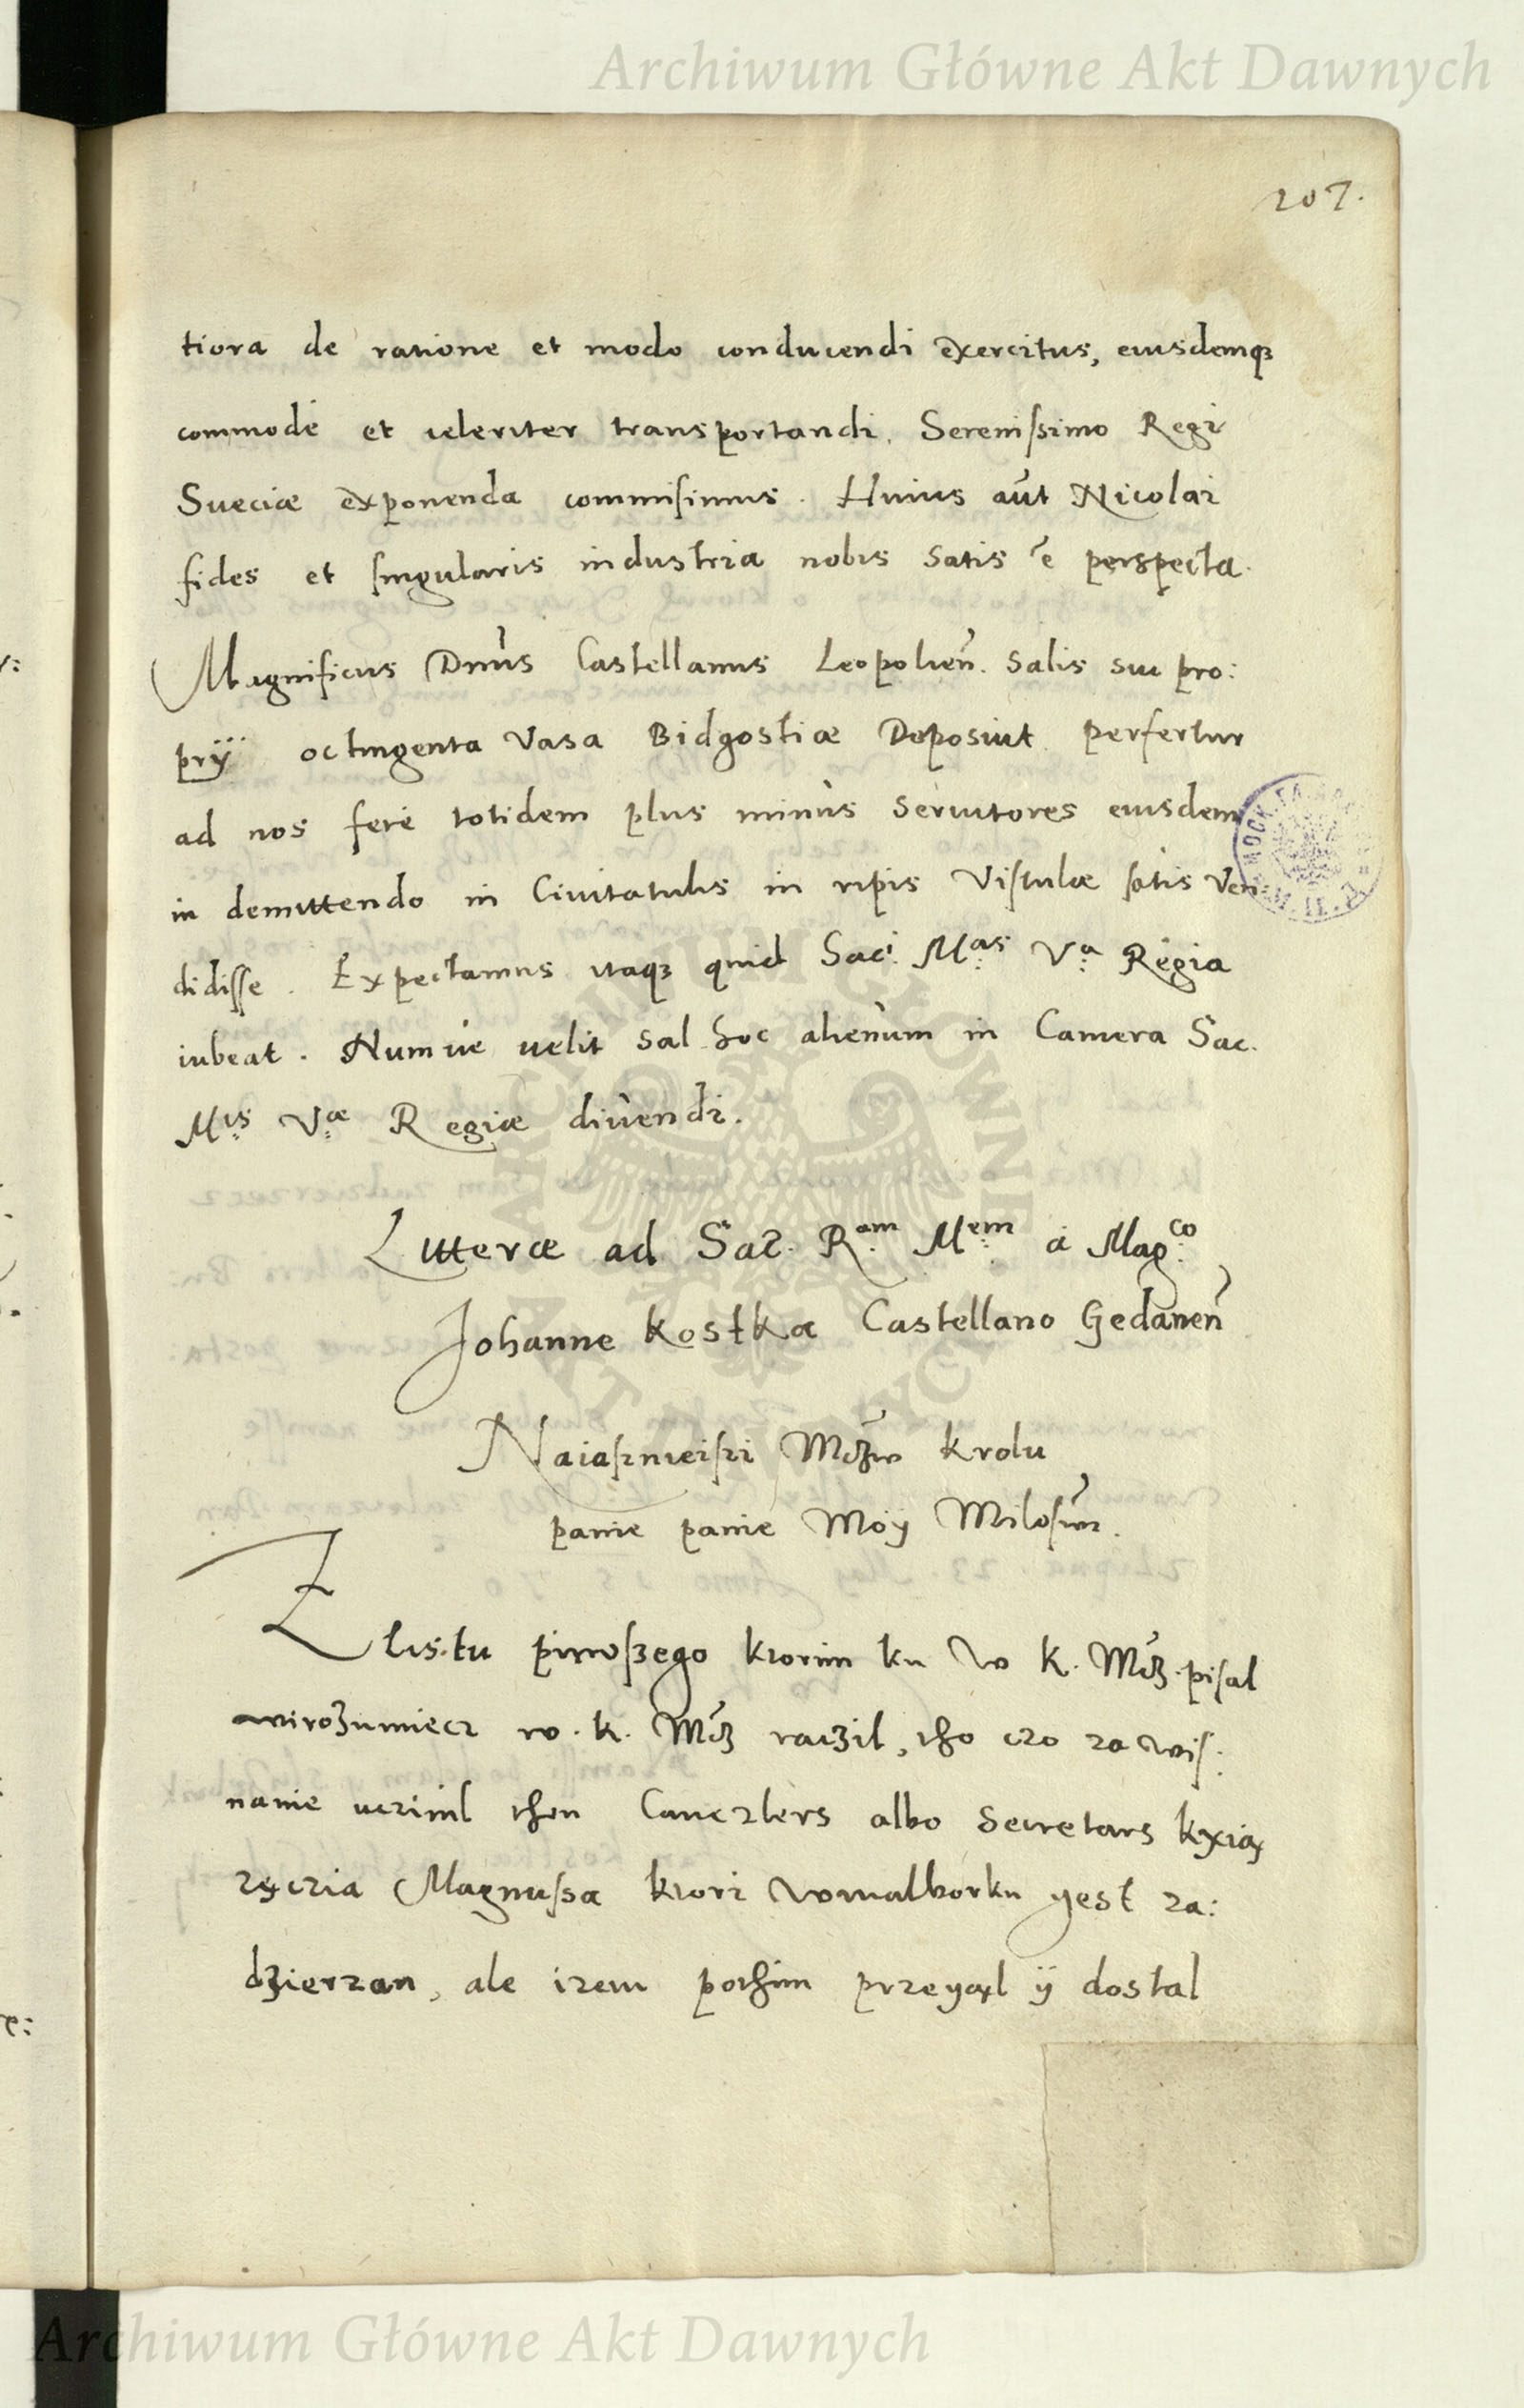 Archiwum Główne Akt Dawnych
207.
tiora de ratione et modo conducendi exercitus, eiusdemqꝫ
commodè et celeriter transportandi. Serenissimo Regi
Sueciæ exponenda commisimus. Huius aut̃ Nicolai
fides et singularis industria nobis satis ẽ perspecta.
Magnificus Dnũs Castellanus Leopolien̄. Salis sui pro:
prÿ octingenta Vasa Bidgostiæ Deposuit perfertur
ad nos ferè totidem plus minùs Seruitores eiusdem
in demittendo in Ciuitatulis in ripis Vistulæ satis Ven
didisse. Expectamus itaqꝫ quid Sac: Mas Va Regia
iubeat. Numùe uelit sal hoc alienum in Camera Sac.
Mtis Væ Regiæ diùendi.
Litteræ ad Sac. Ram Mem à Magco
Johanne Kostka Castellano Gedanen̄
Naiasznieiszi Mczw krolu
panie panie Moÿ Milosciwi.
Z listu pirwszego ktorim ku W K. Mcz. pisal
wirozumiecz w. k. Mcz raczil, tho czo za wis:
nanie uczinil then Canczlers albo Secretars kxią
zęczia Magnusa ktori wmalborku yest za:
dzierzan, ale izem pothim przeyął ÿ dostal
Archiwum Główne Akt Dawnych